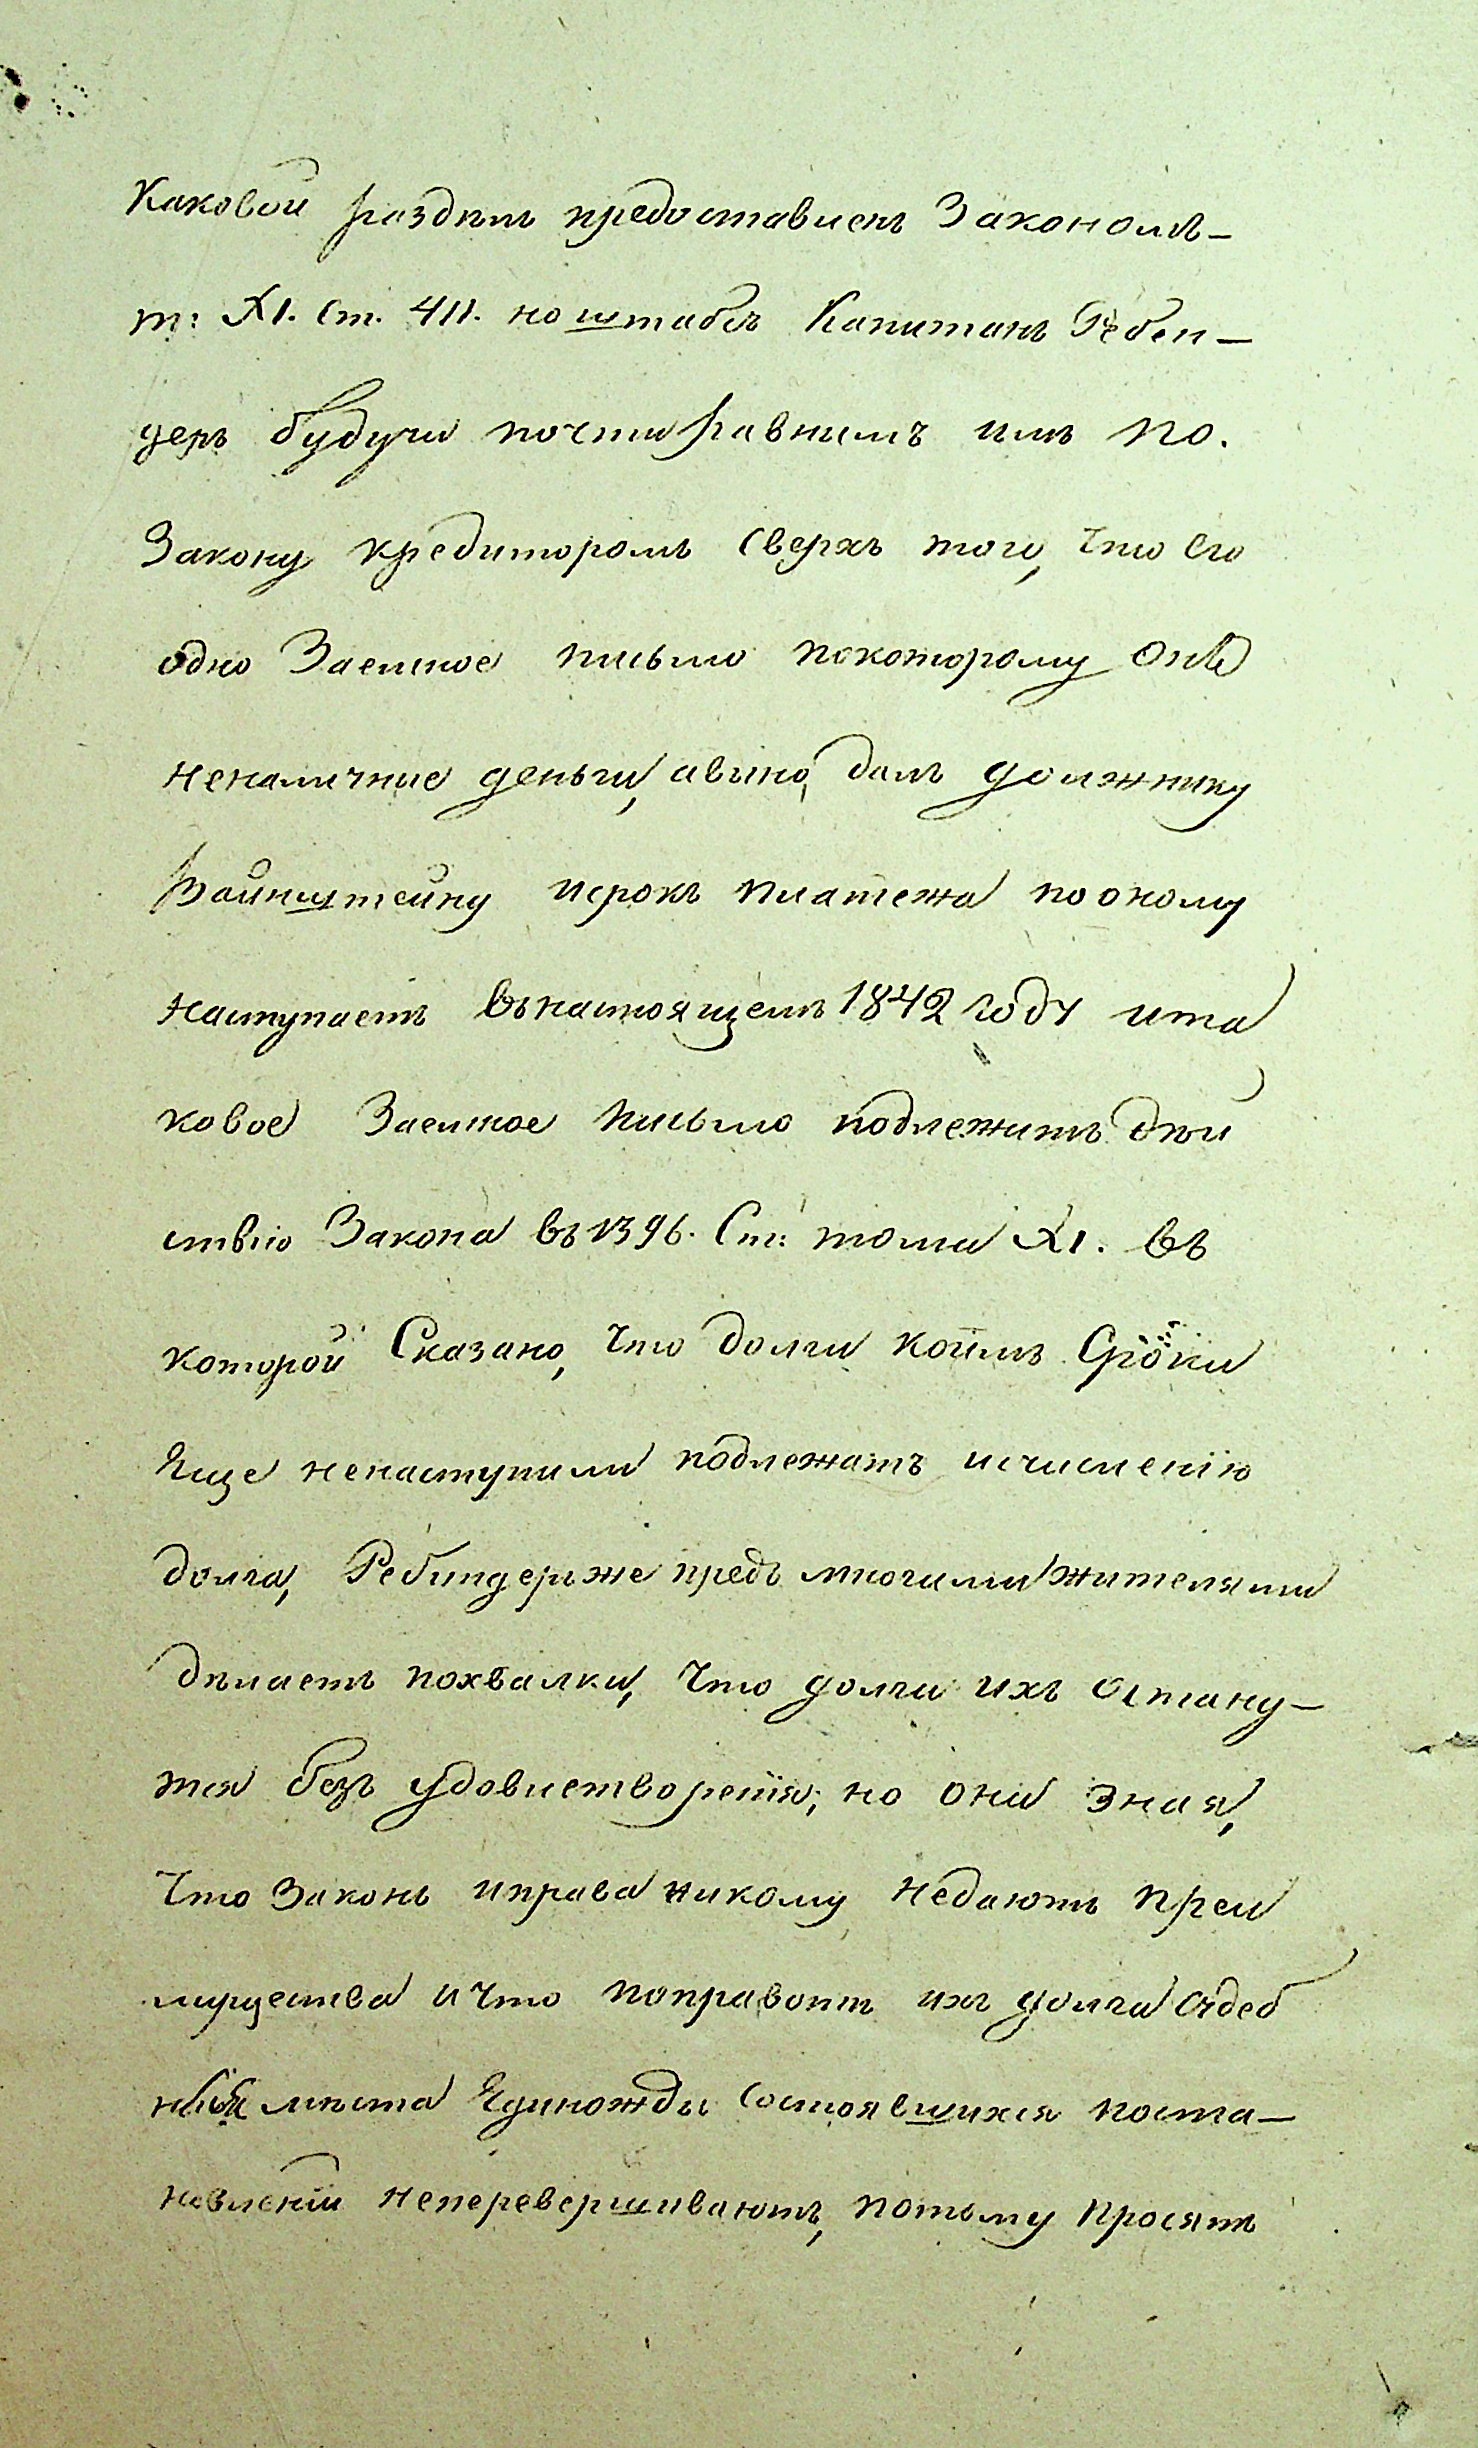 Каковой раздѣлъ предоставленъ Закономъ—
т: XI. Ст. 411. но штабсъ Капитанъ Ребен—
деръ будучи почти равнымъ имъ по.
Закону кредиторомъ сверхъ того, что его
одно Заемное письмо покоторому онъ
неналичные деньги, авино, далъ должнику
Вайнштейну исрокъ платежа пооному
наступаетъ въ настоящемъ 1842 году ита
ковое Заемное письмо подлежитъ дѣй
ствію Закона въ 1396. Ст: тома XI. въ
которой Сказано, что долги коимъ Сроки
Еще ненаступили подлежатъ исчисленію
долга, Ребиндеръ же предъ многими жителями
дѣлаетъ похвалки, что долги ихъ остану—
тся безъ удовлетворенія; но они зная,
что Законъ иправа никому недаютъ преи
мущества и что поправомъ ихъ долги судеб
ныя мѣста Единожды состоявшихся поста—
новленій неперевершиваютъ, потому просятъ